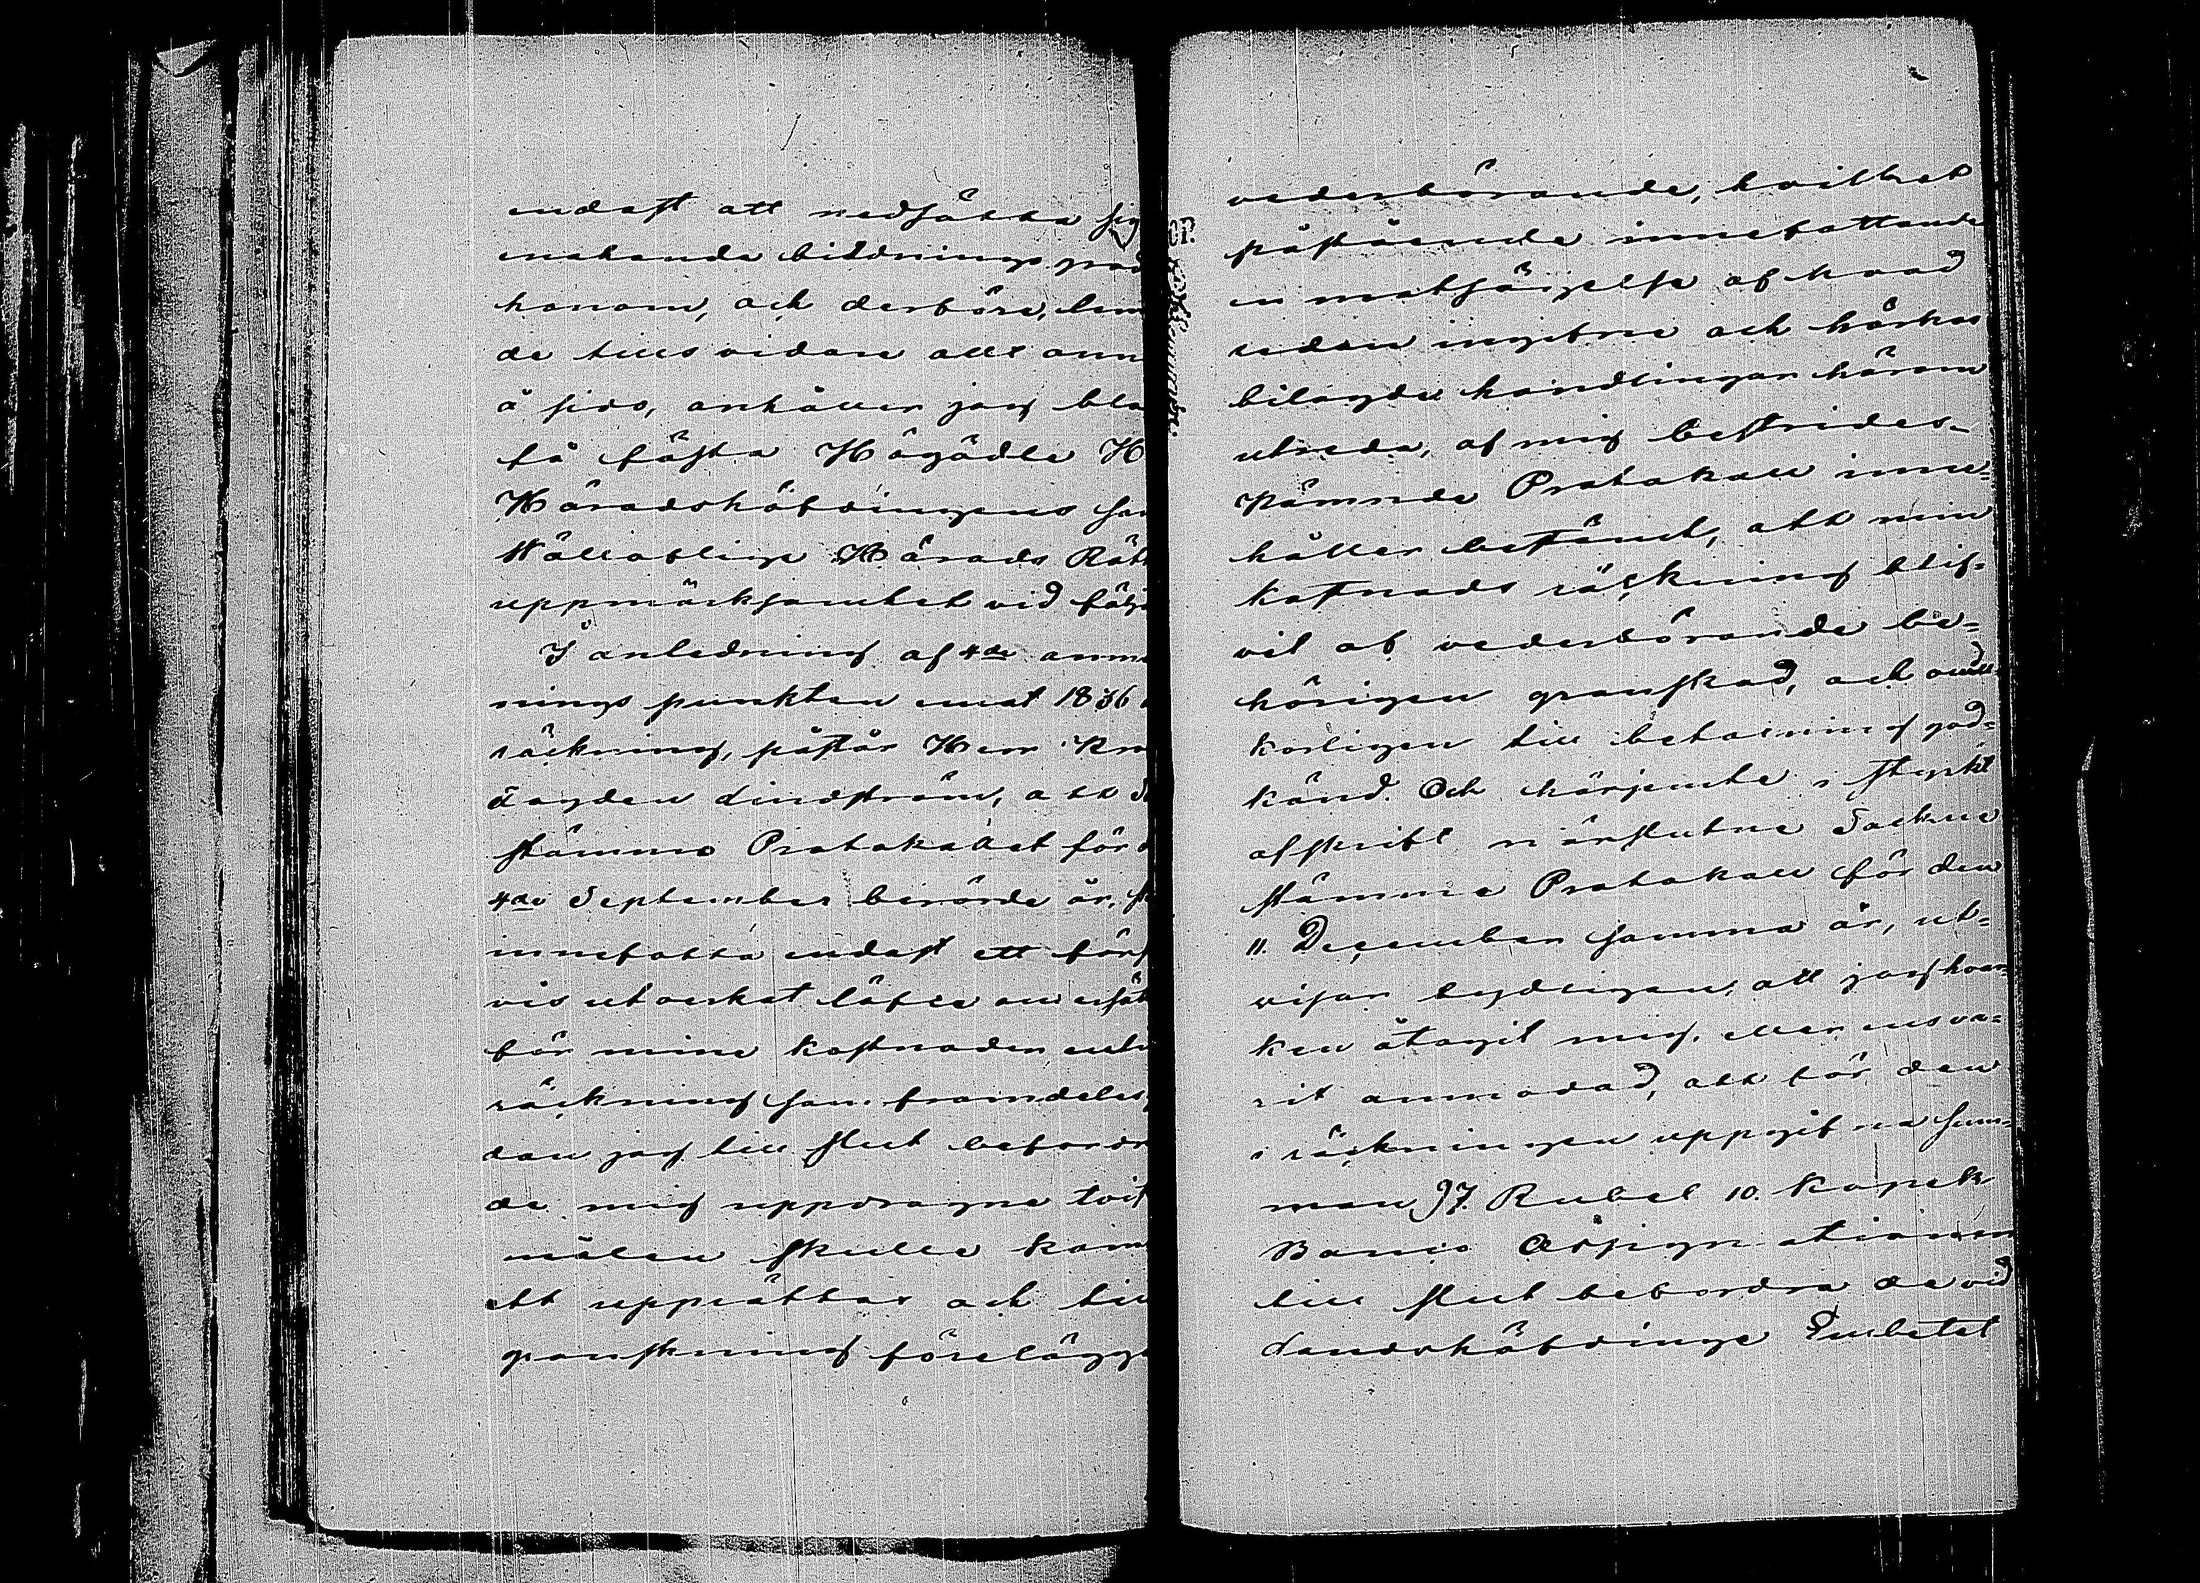 endast att nedsätta sig
enahanda bildnings grad
honom, och derföre, lem
de tills vidare allt ann
å sido, anhåller jag bla
få fästa Högädle H
Häradshöfdingens sam
Vällofliga Härads Rätt
uppmärksamhet vid följ
I anledning af 4de anmä
nings punkten emot 1836
räckning, påstår Herr Kro
fogden Lindström, att So
stämmo Protokollet för d
4de September berörde år,
innefatta endast ett förs
vis utverkat löfte om ersät
för mine kostnader, enli
räckning som framdeles,
dan jag till slut befordr
de mig uppdragne tvist
målen skulle kom
att upprättas och till
granskning förelägga
vederbörande, hvilket
påstående innefattande
en motsägelse af hvad
redan ingifne och härhos
bilagde handlingar härom
utreda, af mig bestrides.
Nämnde Protokoll inne-
håller bestämt, att min
kostnads räckning blif-
vit af vederbörande be-
hörigen granskad, och ovill-
korligen till betalning god-
känd. Och härjemte i styrkt
afskrift närslutne Sockne
stämme Protokoll för den
11. December samma år, ut-
visar tydligen, att jag hvar-
ken åtagit mig, eller ens va-
rit anmodad, att för den
i räckningen uppgifna sum-
man 97. Rubel 10. kopek
Banco Assignationer
till slut befordra de vid
Landshöfdinge Embetet